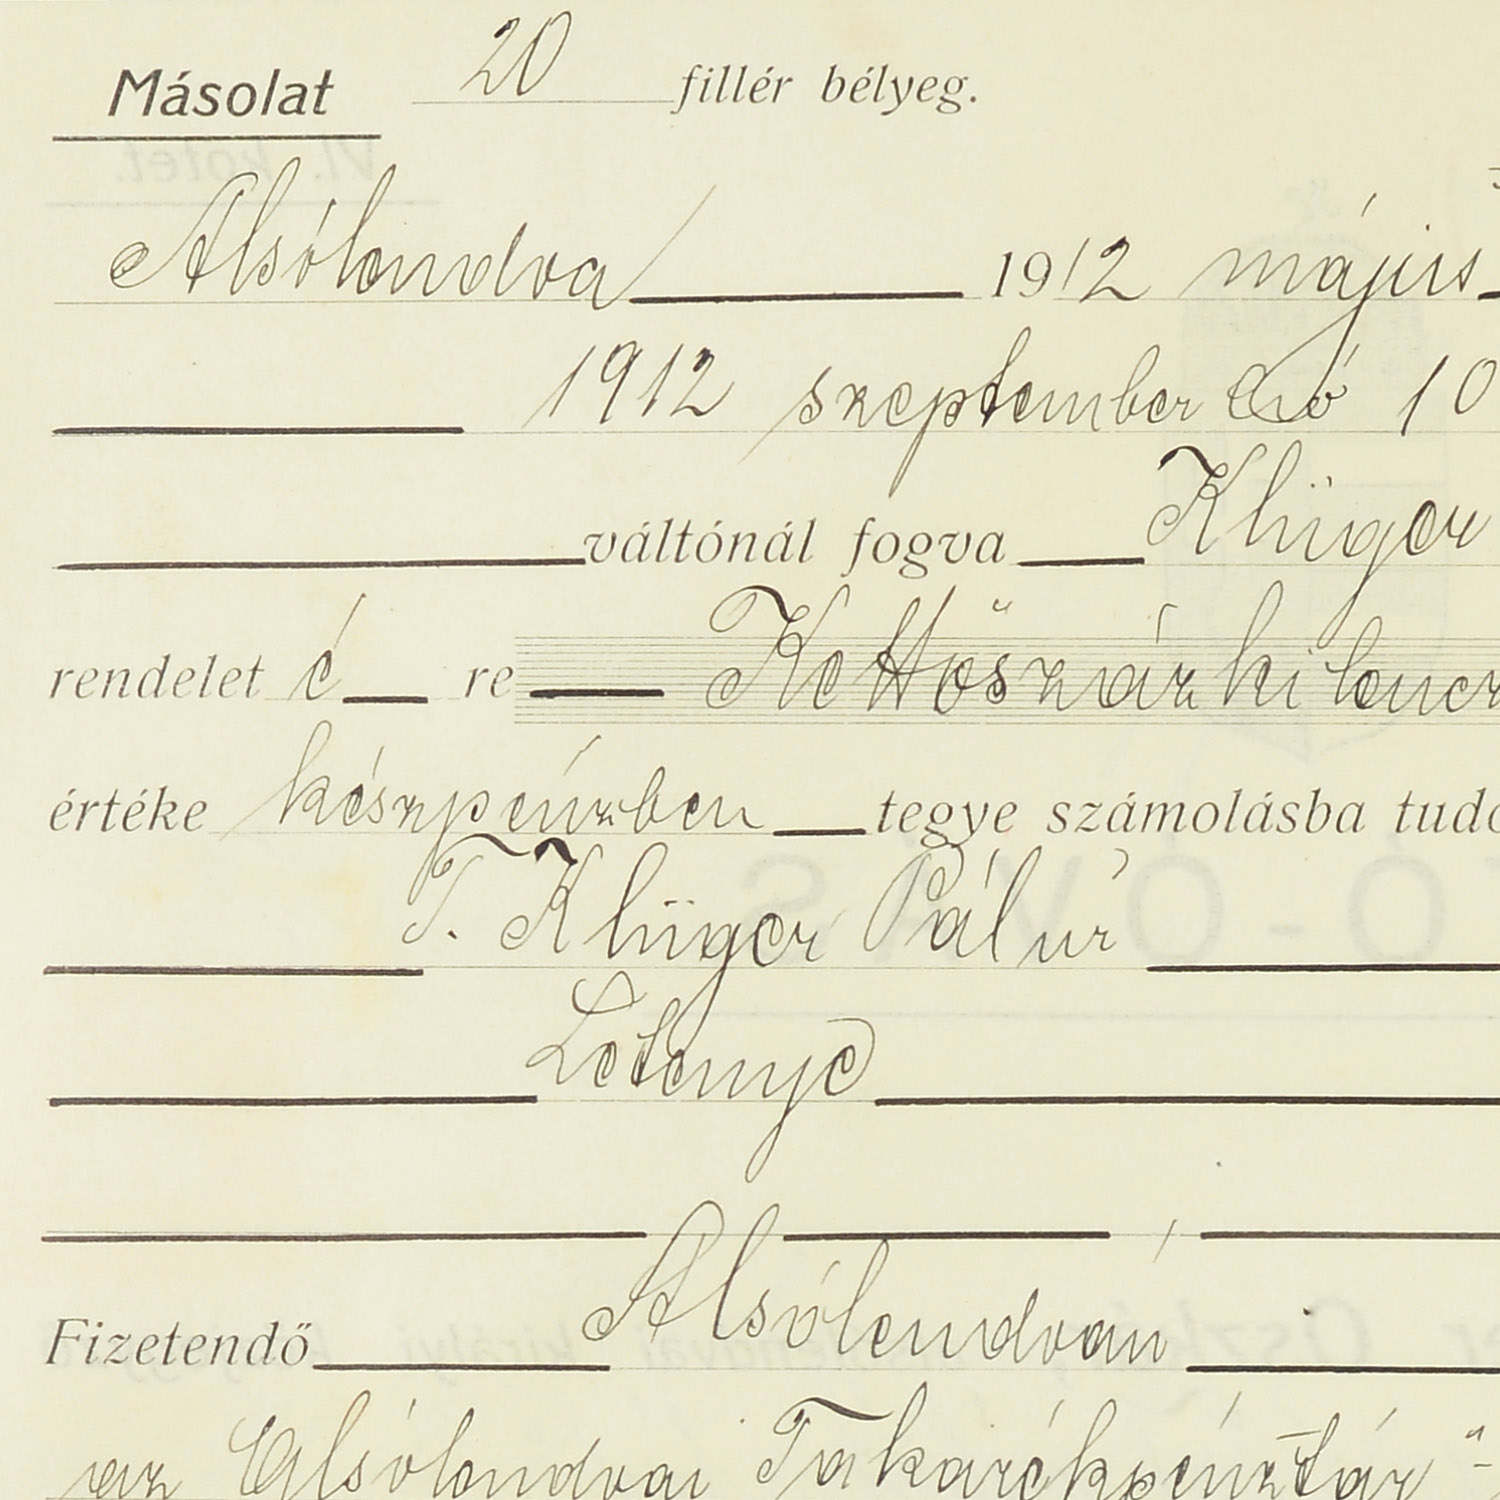 Másolat 20 fillér bélyeg.
Alsólendva 1912 május
1912 szeptember hó 10
váltónál fogva Klüger
rendelet é re Kettőszázkilencz
értéke készpénzben tegye számolásba tudó
T. Klüger Pál úr
Letenye
Fizetendő Alsólendván
az Alsólendvai Takarékpénztár